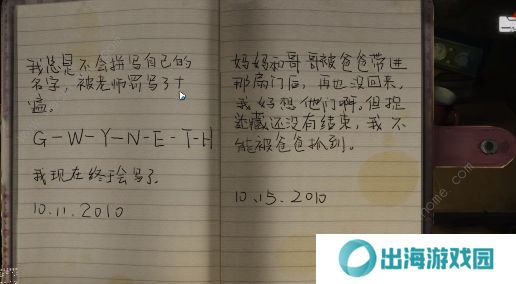 我总是不会拼写自己的
名字，被老师罚写了十
遍。
G-W-Y-N-E-T-H
我现在终于会写了。
10.11.2010
妈妈和哥哥被爸爸带进
那扇门后，再也没回来，
我好想他们啊。但捉
迷藏还没有结束，我不
能被爸爸抓到。
10.15.2010
出海游戏园